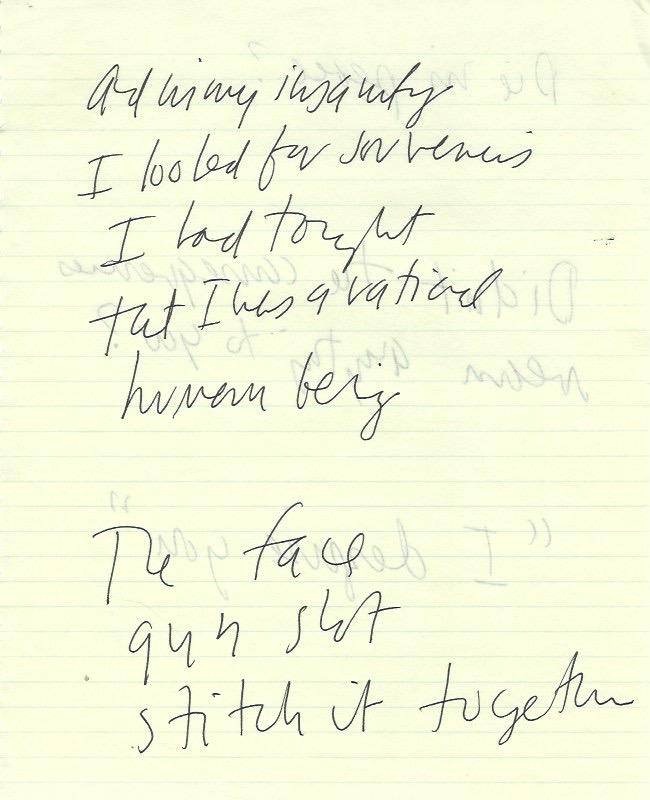 And in my insanity
I looked for souveneirs
I had tought
tat I was a rational
human being
The face
gun shot
stitch it together